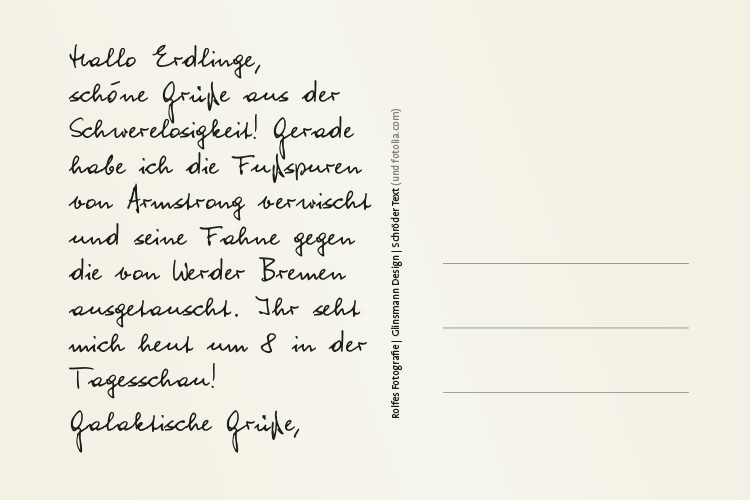 Hallo Erdlinge,
schöne Grüße aus der
Schwerelosigkeit! Gerade
habe ich die Fußspuren
von Armstrong verwischt
und seine Fahne gegen
die von Werder Bremen
ausgetauscht. Ihr seht
mich heut um 8 in der
Tagesschau!
Galaktische Grüße,
Rolfes Fotografie | Glinsmann Design | Schröder Text (und fotolia.com)